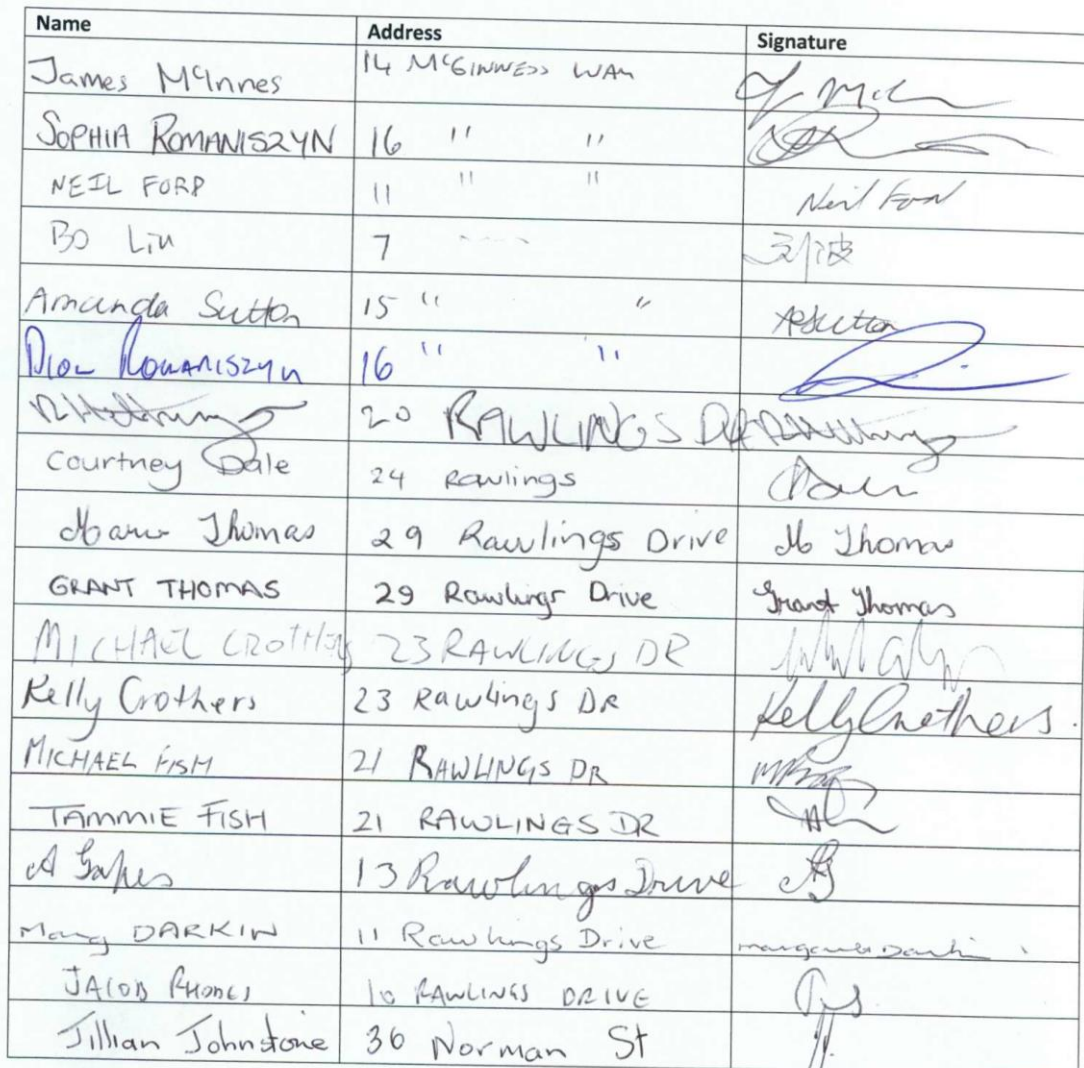 Name Address Signature
James McInnes 14 McGINNESS WAY
SOPHIA ROMANISZYN 16 " "
NEIL FORD 11 " " Neil Ford
Bo Liu 7 刘波
Amanda Sutton 15 " " ASutton
Dion Romaniszyn 16 " "
20 RAWLINGS DR
Courtney Dale 24 Rawlings
Thomas 29 Rawlings Drive M Thomas
GRANT THOMAS 29 Rawlings Drive Grant Thomas
MICHAEL CROTHERS 23 RAWLINGS DR
Kelly Crothers 23 Rawlings DR Kelly Crothers.
MICHAEL FISH 21 RAWLINGS DR
TAMMIE FISH 21 RAWLINGS DR
A 13 Rawlings Drive
DARKIN 11 Rawlings Drive Margaret Darkin
JACOB RHODES 10 RAWLINGS DRIVE
Jillian Johnstone 36 Norman St